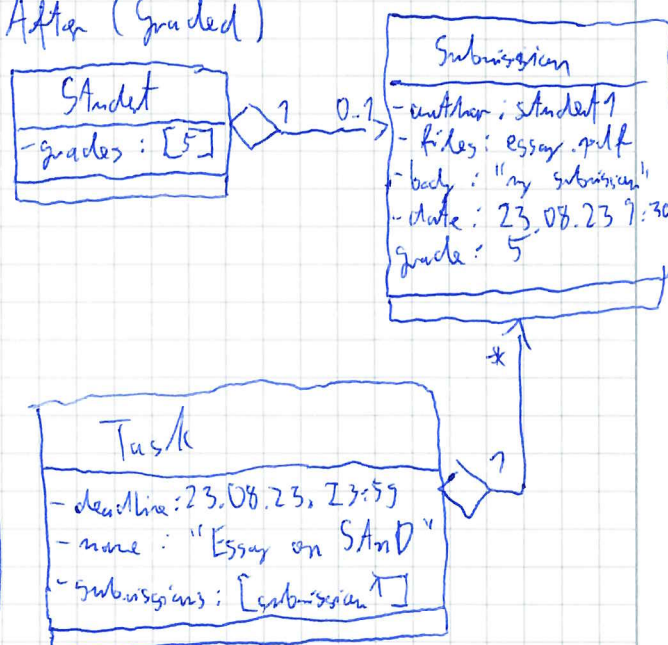 After (Graded)
Student
- grades : [5]
1
0..1
Submission
- author : student1
- files : essay.pdf
- body : "my submission"
- date : 23.08.23 9:30
grade : 5
*
1
Task
- deadline : 23.08.23, 23:59
- name : "Essay on SAnD"
- submissions : [submission1]